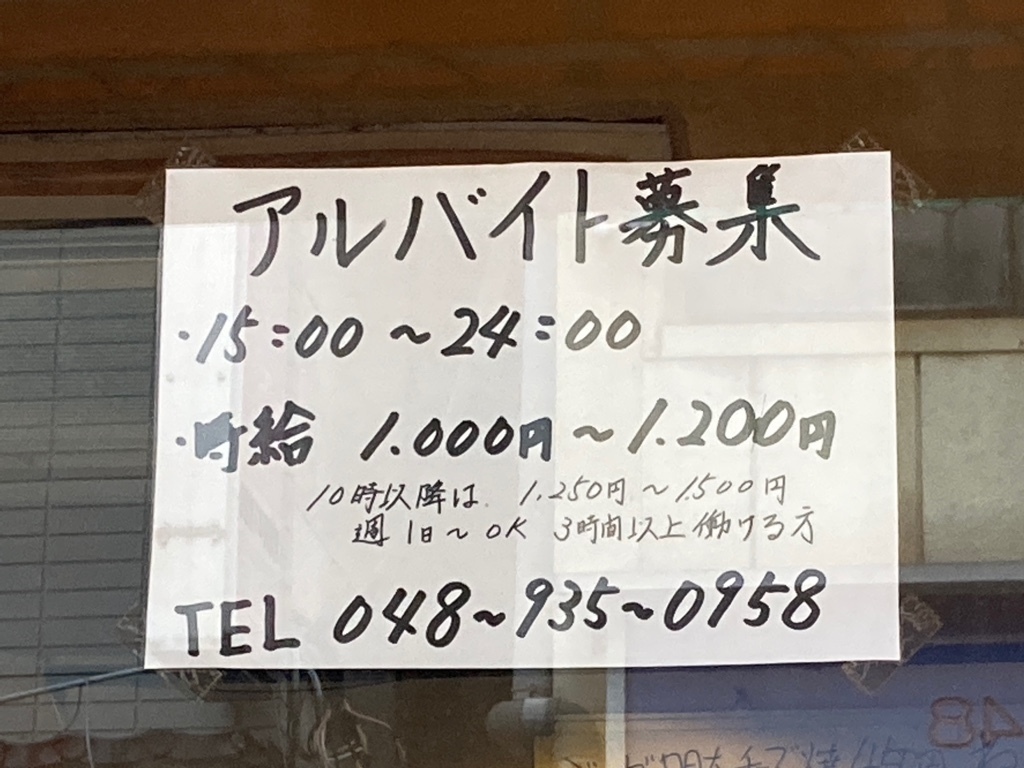 アルバイト募集
・15:00～24:00
・時給 1.000円～1.200円
10時以降は 1.250円～1.500円
週1日～OK 3時間以上働ける方
TEL 048~935~0958
48